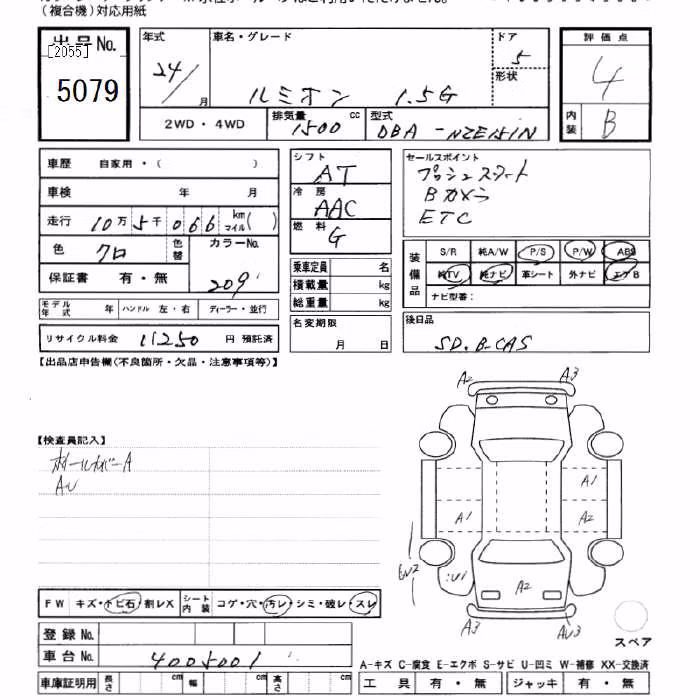 (複合機)対応用紙
出品No.
[2055]
5079
年式
24/
月
車名・グレード
ルミオン 1.5G
ドア
5
形状
評価点
4
内装
B
2WD・4WD
排気量
1500
cc
型式
DBA-NZE151N
車歴 自家用・( )
車検 年 月
走行 10万5千066 km マイル( )
色 クロ
色替
カラーNo.
209
保証書 有・無
モデル年式 年 ハンドル 左・右 ディーラー・並行
リサイクル料金 11250 円 預託済
シフト
AT
冷房
AAC
燃料
G
乗車定員 名
積載量 kg
総重量 kg
名変期限
月 日
セールスポイント
プッシュスタート
Bカメラ
ETC
装備品
S/R 純A/W P/S P/W ABS
純TV 純ナビ 革シート 外ナビ エアB
ナビ型番:
後日品
SD.B-CAS
【出品店申告欄(不良箇所・欠品・注意事項等)】
【検査員記入】
ホイールカバーA
AU
A2 A3
A1
A1 A2
U1
A2
A3 AU3
FW キズ・トビ石・割レX
シート内装 コゲ・穴・汚レ・シミ・破レ・スレ
登録No.
車台No. 4005001
スペア
A-キズ C-腐食 E-エクボ S-サビ U-凹ミ W-補修 XX-交換済
車庫証明用 長さ cm 幅 cm 高さ cm
工具 有・無 ジャッキ 有・無